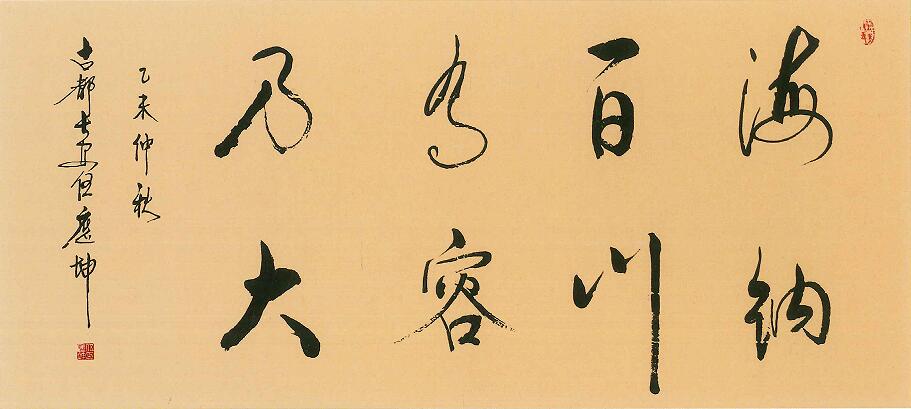 海纳
百川
有容
乃大
乙未仲秋
古都长安任應坤